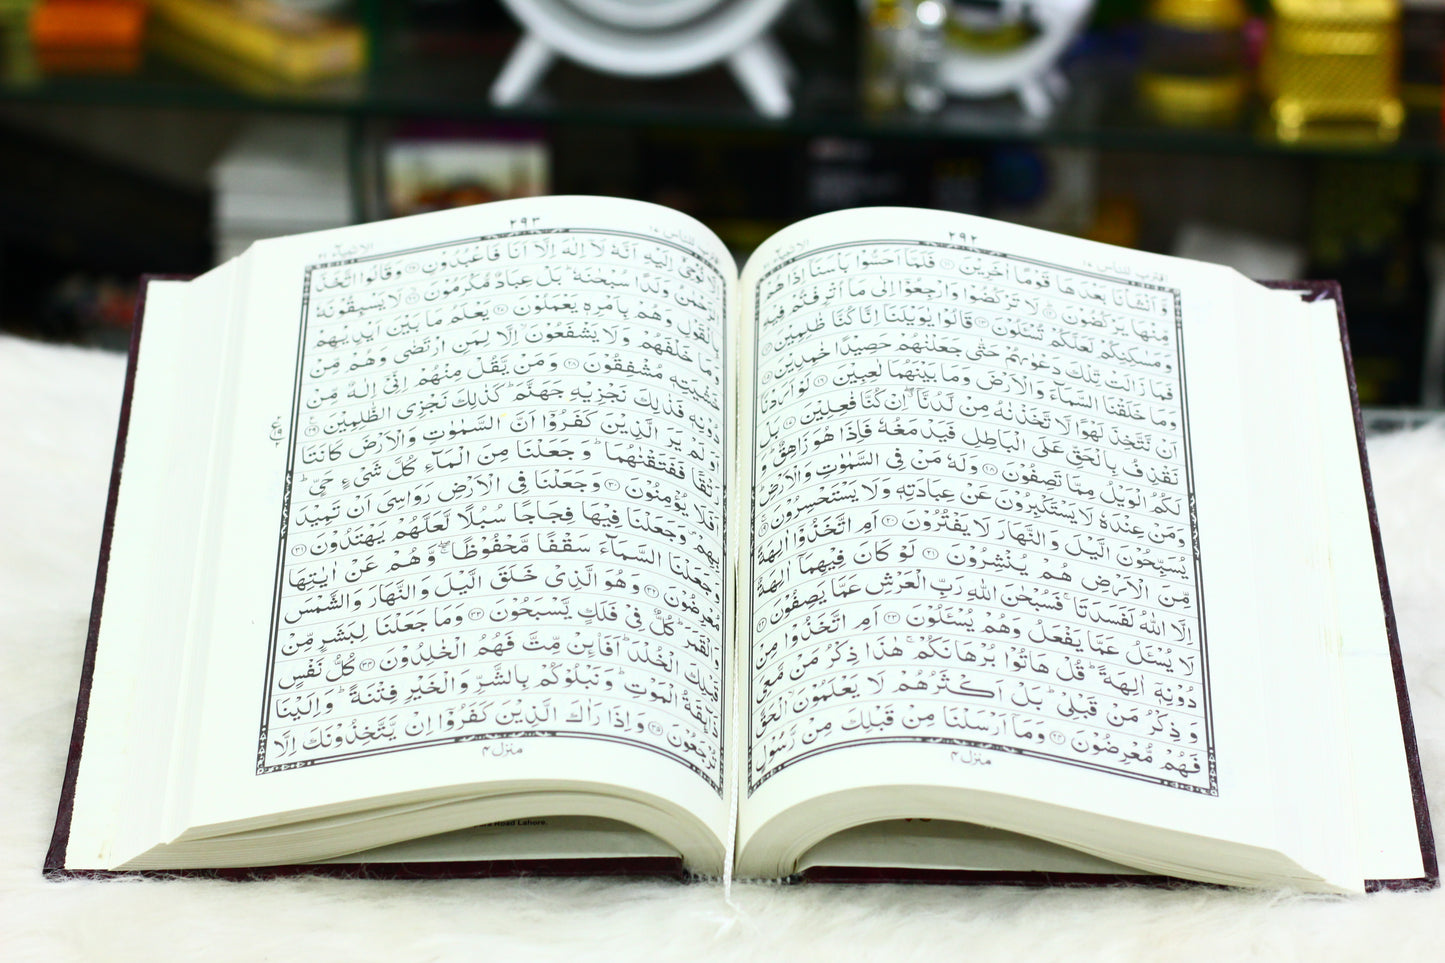 ٢٩٢
اقترب للناس ١٧
الانبيآء ٢١
وَّ اَنْشَاْنَا بَعْدَهَا قَوْمًا اٰخَرِيْنَ ﴿١١﴾ فَلَمَّاۤ اَحَسُّوْا بَاْسَنَاۤ اِذَا هُمْ
مِّنْهَا يَرْكُضُوْنَ ﴿١٢﴾ لَا تَرْكُضُوْا وَارْجِعُوْۤا اِلٰى مَاۤ اُتْرِفْتُمْ فِيْهِ
وَمَسٰكِنِكُمْ لَعَلَّكُمْ تُسْـَٔلُوْنَ ﴿١٣﴾ قَالُوْا يٰوَيْلَنَاۤ اِنَّا كُنَّا ظٰلِمِيْنَ ﴿١٤﴾
فَمَا زَالَتْ تِّلْكَ دَعْوٰىهُمْ حَتّٰى جَعَلْنٰهُمْ حَصِيْدًا خٰمِدِيْنَ ﴿١٥﴾
وَمَا خَلَقْنَا السَّمَآءَ وَالْاَرْضَ وَمَا بَيْنَهُمَا لٰعِبِيْنَ ﴿١٦﴾ لَوْ اَرَدْنَاۤ
اَنْ نَّتَّخِذَ لَهْوًا لَّاتَّخَذْنٰهُ مِنْ لَّدُنَّاۤ ۖ اِنْ كُنَّا فٰعِلِيْنَ ﴿١٧﴾ بَلْ
نَقْذِفُ بِالْحَقِّ عَلَى الْبَاطِلِ فَيَدْمَغُهٗ فَاِذَا هُوَ زَاهِقٌ ؕ وَ
لَكُمُ الْوَيْلُ مِمَّا تَصِفُوْنَ ﴿١٨﴾ وَلَهٗ مَنْ فِى السَّمٰوٰتِ وَالْاَرْضِ ؕ
وَمَنْ عِنْدَهٗ لَا يَسْتَكْبِرُوْنَ عَنْ عِبَادَتِهٖ وَلَا يَسْتَحْسِرُوْنَ ﴿١٩﴾
يُسَبِّحُوْنَ الَّيْلَ وَالنَّهَارَ لَا يَفْتُرُوْنَ ﴿٢٠﴾ اَمِ اتَّخَذُوْۤا اٰلِهَةً
مِّنَ الْاَرْضِ هُمْ يُنْشِرُوْنَ ﴿٢١﴾ لَوْ كَانَ فِيْهِمَاۤ اٰلِهَةٌ
اِلَّا اللّٰهُ لَفَسَدَتَا ۚ فَسُبْحٰنَ اللّٰهِ رَبِّ الْعَرْشِ عَمَّا يَصِفُوْنَ ﴿٢٢﴾
لَا يُسْـَٔلُ عَمَّا يَفْعَلُ وَهُمْ يُسْـَٔلُوْنَ ﴿٢٣﴾ اَمِ اتَّخَذُوْا مِنْ
دُوْنِهٖۤ اٰلِهَةً ؕ قُلْ هَاتُوْا بُرْهَانَكُمْ ۚ هٰذَا ذِكْرُ مَنْ مَّعِىَ
وَ ذِكْرُ مَنْ قَبْلِىْ ؕ بَلْ اَكْثَرُهُمْ لَا يَعْلَمُوْنَ ۙ الْحَقَّ
فَهُمْ مُّعْرِضُوْنَ ﴿٢٤﴾ وَمَاۤ اَرْسَلْنَا مِنْ قَبْلِكَ مِنْ رَّسُوْلٍ
منزل ٤
٢٩٣
اقترب للناس ١٧
الانبيآء ٢١
اِلَّا نُوْحِىْۤ اِلَيْهِ اَنَّهٗ لَاۤ اِلٰهَ اِلَّاۤ اَنَا فَاعْبُدُوْنِ ﴿٢٥﴾ وَقَالُوا اتَّخَذَ
الرَّحْمٰنُ وَلَدًا سُبْحٰنَهٗ ؕ بَلْ عِبَادٌ مُّكْرَمُوْنَ ﴿٢٦﴾ لَا يَسْبِقُوْنَهٗ
بِالْقَوْلِ وَهُمْ بِاَمْرِهٖ يَعْمَلُوْنَ ﴿٢٧﴾ يَعْلَمُ مَا بَيْنَ اَيْدِيْهِمْ
وَمَا خَلْفَهُمْ وَلَا يَشْفَعُوْنَ ۙ اِلَّا لِمَنِ ارْتَضٰى وَهُمْ مِّنْ
خَشْيَتِهٖ مُشْفِقُوْنَ ﴿٢٨﴾ وَمَنْ يَّقُلْ مِنْهُمْ اِنِّىْۤ اِلٰهٌ مِّنْ
دُوْنِهٖ فَذٰلِكَ نَجْزِيْهِ جَهَنَّمَ ؕ كَذٰلِكَ نَجْزِى الظّٰلِمِيْنَ ﴿٢٩﴾
اَوَلَمْ يَرَ الَّذِيْنَ كَفَرُوْۤا اَنَّ السَّمٰوٰتِ وَالْاَرْضَ كَانَتَا
رَتْقًا فَفَتَقْنٰهُمَا ؕ وَجَعَلْنَا مِنَ الْمَآءِ كُلَّ شَىْءٍ حَىٍّ ؕ
اَفَلَا يُؤْمِنُوْنَ ﴿٣٠﴾ وَجَعَلْنَا فِى الْاَرْضِ رَوَاسِىَ اَنْ تَمِيْدَ
بِهِمْ وَجَعَلْنَا فِيْهَا فِجَاجًا سُبُلًا لَّعَلَّهُمْ يَهْتَدُوْنَ ﴿٣١﴾
وَجَعَلْنَا السَّمَآءَ سَقْفًا مَّحْفُوْظًا ۖ وَّهُمْ عَنْ اٰيٰتِهَا
مُعْرِضُوْنَ ﴿٣٢﴾ وَهُوَ الَّذِىْ خَلَقَ الَّيْلَ وَالنَّهَارَ وَالشَّمْسَ
وَالْقَمَرَ ؕ كُلٌّ فِىْ فَلَكٍ يَّسْبَحُوْنَ ﴿٣٣﴾ وَمَا جَعَلْنَا لِبَشَرٍ مِّنْ
قَبْلِكَ الْخُلْدَ ؕ اَفَا۟ئِنْ مِّتَّ فَهُمُ الْخٰلِدُوْنَ ﴿٣٤﴾ كُلُّ نَفْسٍ
ذَآئِقَةُ الْمَوْتِ ؕ وَنَبْلُوْكُمْ بِالشَّرِّ وَالْخَيْرِ فِتْنَةً ؕ وَاِلَيْنَا
تُرْجَعُوْنَ ﴿٣٥﴾ وَاِذَا رَاٰكَ الَّذِيْنَ كَفَرُوْۤا اِنْ يَّتَّخِذُوْنَكَ اِلَّا
منزل ٤
Road Lahore.